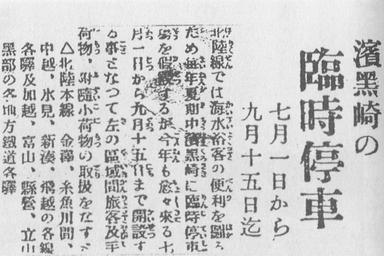 濱黑崎の
臨時停車
七月一日から
九月十五日迄
北陸線では海水浴客の便利を圖る
ため每年夏期中濱黑崎に臨時停車
場を假設するが今年も愈々來る七
月一日から九月十五日まで開設す
る事となつて左の區域間旅客及手
荷物、附隨小荷物の取扱をなす
△北陸本線 金澤、糸魚川間、
中越、氷見、新湊、飛越の各線
各驛及加越、富山、縣營、立山
黑部の各地方鐵道各驛